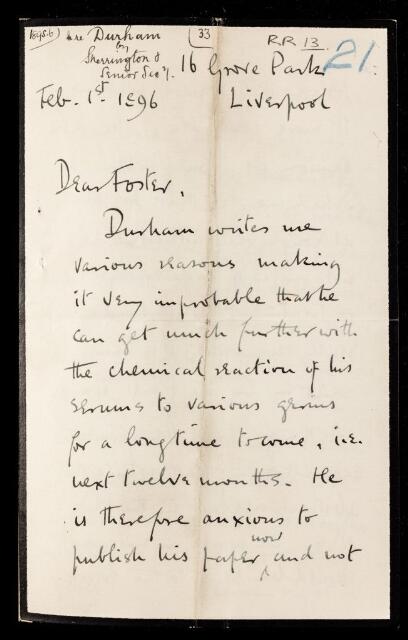 1895-6
re Durham
by
Sherrington &
Senior Secy.
33
R.R 13.
21.
16 Grove Park
Liverpool
Feb. 1st 1896
Dear Foster,
Durham writes me
various reasons making
it very improbable that he
can get much further with
the chemical reaction of his
serums to various germs
for a long time to come, i.e.
next twelve months. He
is therefore anxious to
publish his paper now and not